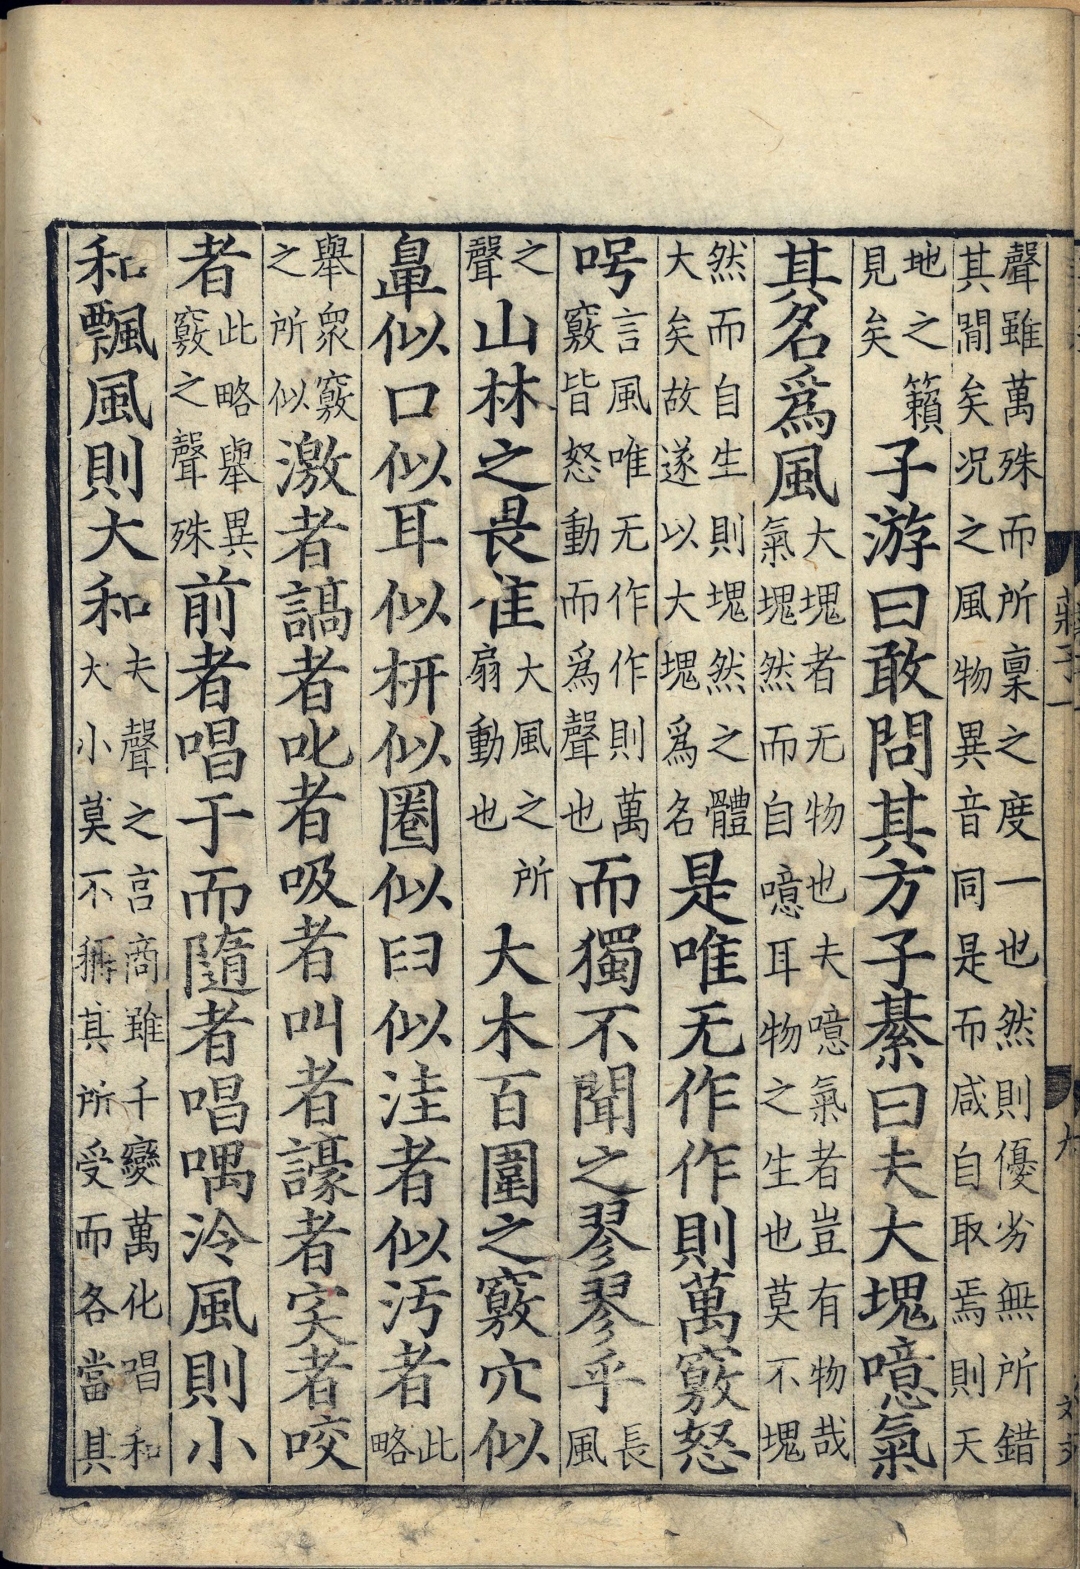 聲雖萬殊而所稟之度一也然則優劣無所錯
其閒矣况之風物異音同是而咸自取焉則天
地之籟見矣子游曰敢問其方子綦曰夫大塊噫氣
其名爲風大塊者无物也夫噫氣者豈有物哉氣塊然而自噫耳物之生也莫不塊
然而自生則塊然之體大矣故遂以大塊爲名是唯无作作則萬竅怒
呺言風唯无作作則萬竅皆怒動而爲聲也而獨不聞之翏翏乎長風
之聲山林之畏隹大風之所扇動也大木百圍之竅穴似
鼻似口似耳似枅似圈似臼似洼者似汚者此略
舉衆竅之所似激者謞者叱者吸者叫者譹者宎者咬
者此略舉異竅之聲殊前者唱于而隨者唱喁泠風則小
和飄風則大和夫聲之宫商雖千變萬化唱和大小莫不稱其所受而各當其